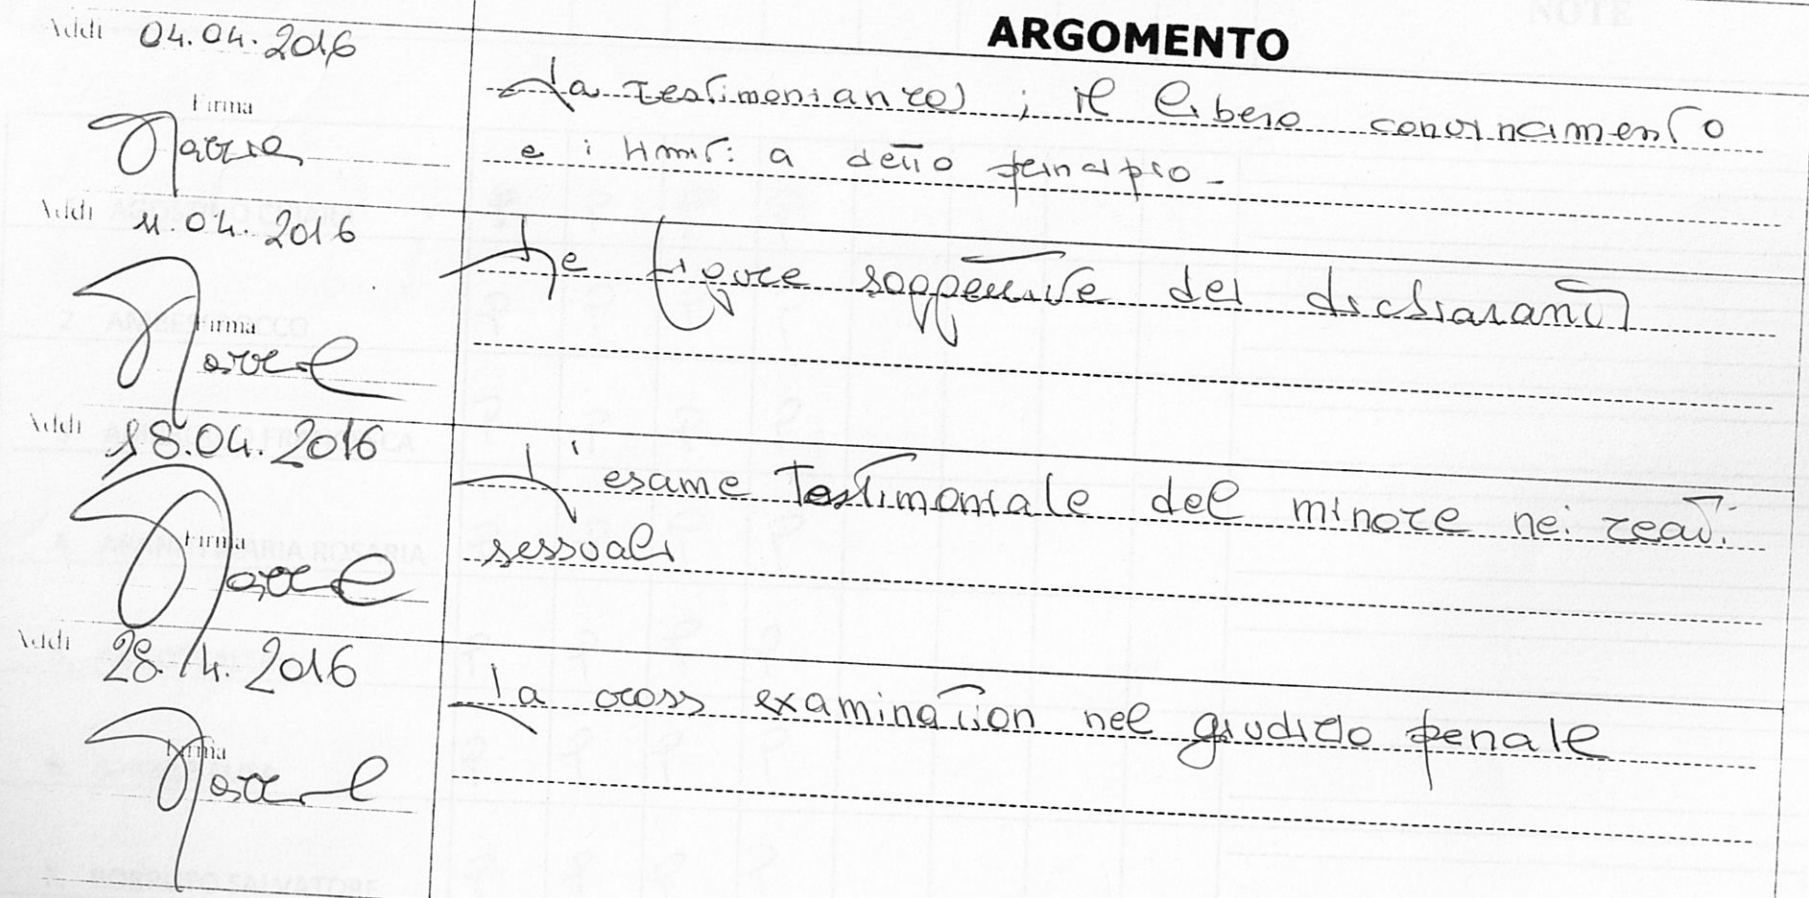 ARGOMENTO
Addì 04.04.2016
La testimonianza; il libero convincimento
Firma
e i limiti a detto principio -
Addì 11.04.2016
Le figure soggettive dei dichiaranti
Firma
Addì 18.04.2016
L'esame testimoniale del minore nei reati
Firma
sessuali
Addì 28.4.2016
La cross examination nel giudizio penale
Firma